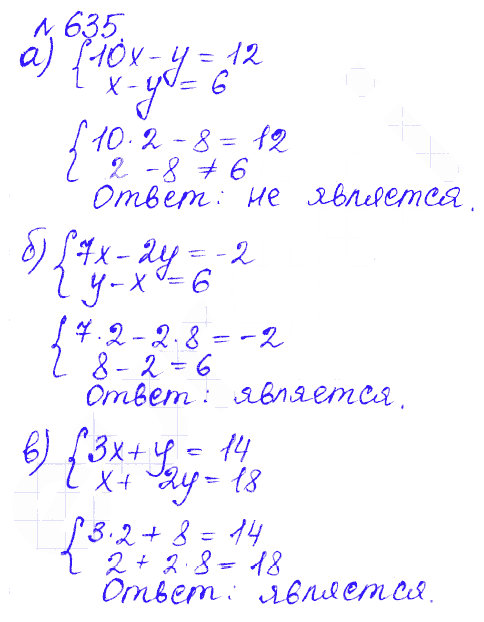 № 635.
а) { 10x - y = 12
x - y = 6
{ 10·2 - 8 = 12
2 - 8 ≠ 6
Ответ: не является.
б) { 7x - 2y = -2
y - x = 6
{ 7·2 - 2·8 = -2
8 - 2 = 6
Ответ: является.
в) { 3x + y = 14
x + 2y = 18
{ 3·2 + 8 = 14
2 + 2·8 = 18
Ответ: является.